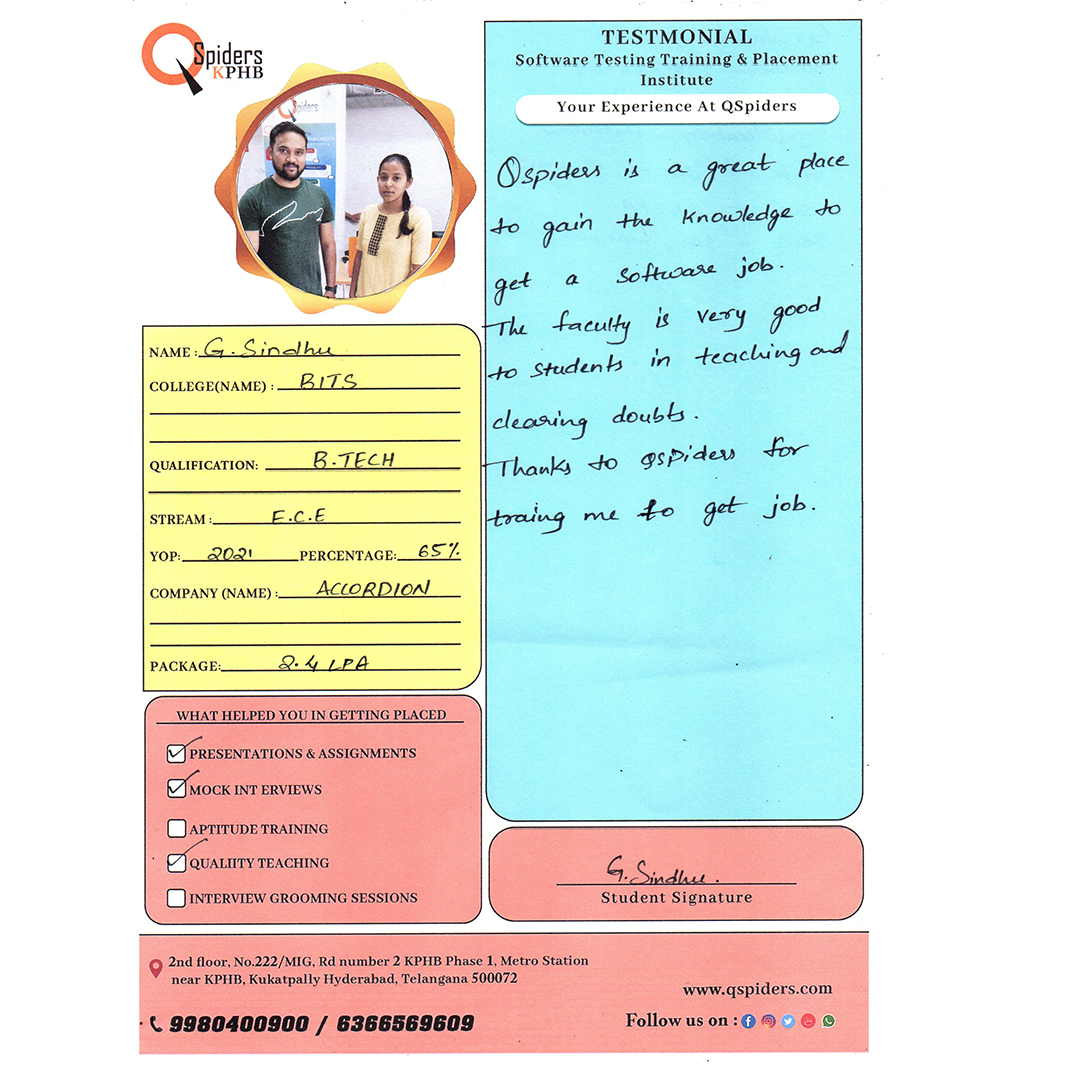 QSpiders
KPHB
QSpiders
NAME : G. Sindhu
COLLEGE(NAME) : BITS
QUALIFICATION: B.TECH
STREAM : E.C.E
YOP: 2021 PERCENTAGE: 65%
COMPANY (NAME) : ACCORDION
PACKAGE: 2.4 LPA
WHAT HELPED YOU IN GETTING PLACED
PRESENTATIONS & ASSIGNMENTS
MOCK INT ERVIEWS
APTITUDE TRAINING
QUALIITY TEACHING
INTERVIEW GROOMING SESSIONS
TESTMONIAL
Software Testing Training & Placement
Institute
Your Experience At QSpiders
Qspiders is a great place
to gain the knowledge to
get a software job.
The faculty is very good
to students in teaching and
clearing doubts.
Thanks to QSPiders for
traing me to get job.
G. Sindhu.
Student Signature
2nd floor, No.222/MIG, Rd number 2 KPHB Phase 1, Metro Station
near KPHB, Kukatpally Hyderabad, Telangana 500072
9980400900 / 6366569609
www.qspiders.com
Follow us on :